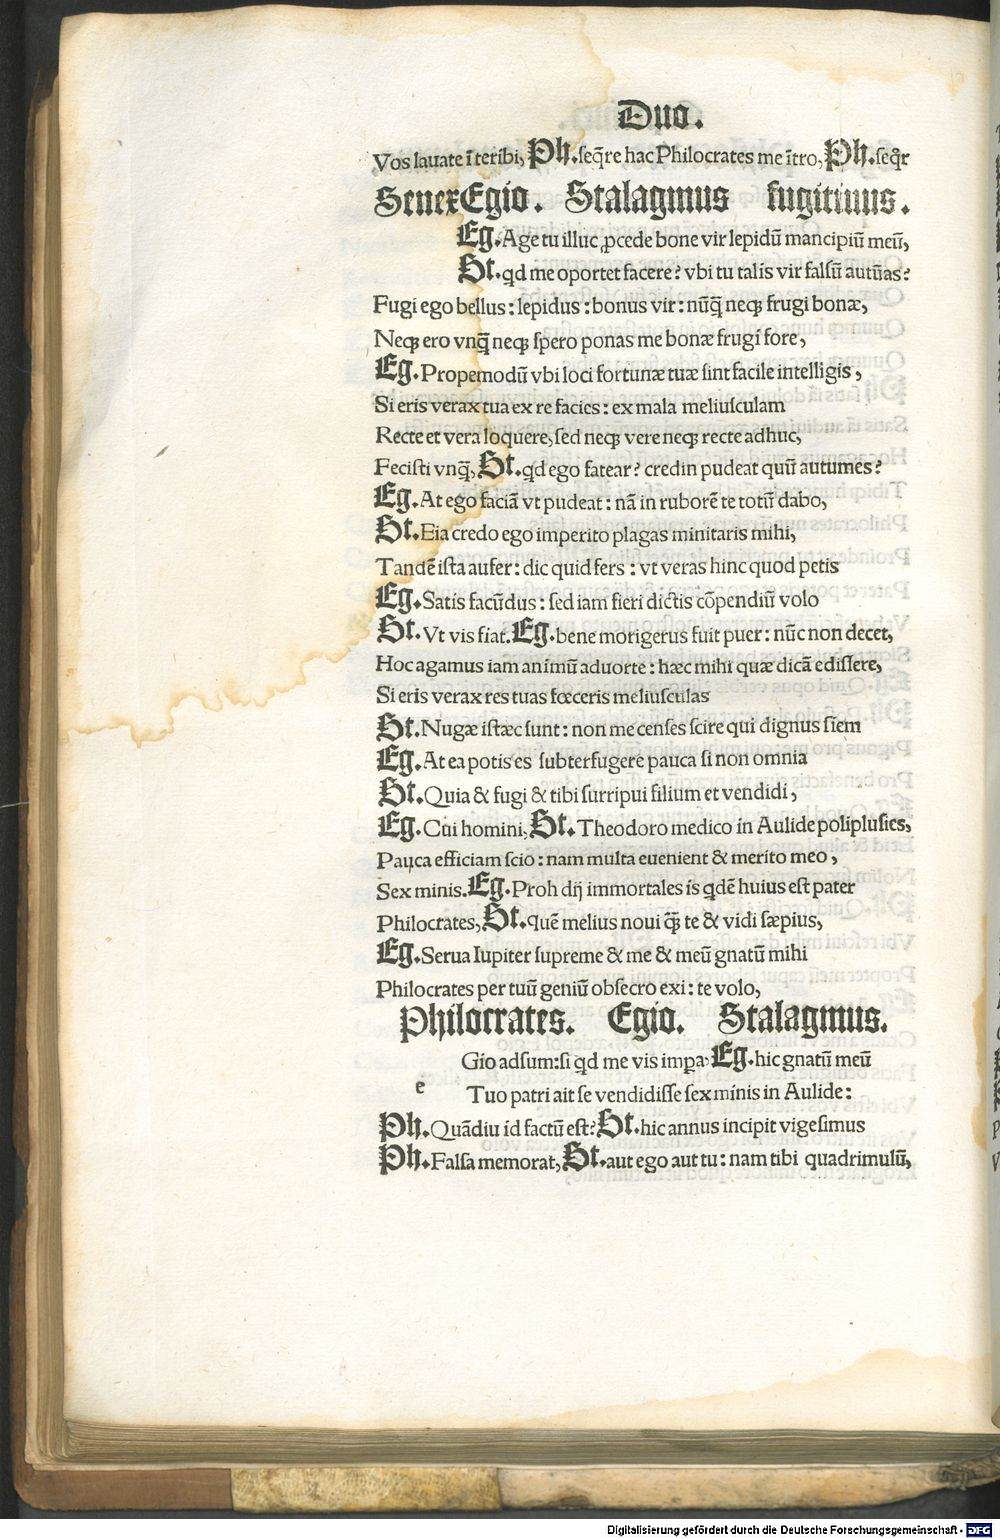 Duo.
Vos lauate ī teribi, Ph. seq̄re hac Philocrates me ītro, Ph. seq̄r
Senex Egio. Stalagmus fugitiuus.
Eg. Age tu illuc ꝓcede bone vir lepidū mancipiū meū,
St. qd me oportet facere? vbi tu talis vir falsū autūas?
Fugi ego bellus: lepidus: bonus vir: nūq̄ neqꝫ frugi bonæ,
Neqꝫ ero vnq̄ neqꝫ spero ponas me bonæ frugi fore,
Eg. Propemodū vbi loci fortunæ tuæ sint facile intelligis,
Si eris verax tua ex re facies: ex mala meliusculam
Recte et vera loquere, sed neqꝫ vere neqꝫ recte adhuc,
Fecisti vnq̄, St. qd ego fatear? credin pudeat quū autumes?
Eg. At ego faciā vt pudeat: nā in ruborē te totū dabo,
St. Eia credo ego imperito plagas minitaris mihi,
Tandē ista aufer: dic quid fers: vt veras hinc quod petis
Eg. Satis facūdus: sed iam fieri dictis cōpendiū volo
St. Vt vis fiat. Eg. bene morigerus fuit puer: nūc non decet,
Hoc agamus iam animū aduorte: hæc mihi quæ dicā edissere,
Si eris verax res tuas fœceris meliusculas
St. Nugæ istæc sunt: non me censes scire qui dignus siem
Eg. At ea potis es subterfugere pauca si non omnia
St. Quia & fugi & tibi surripui filium et vendidi,
Eg. Cui homini, St. Theodoro medico in Aulide poliplusies,
Pauca efficiam scio: nam multa euenient & merito meo,
Sex minis. Eg. Proh dij immortales is qdē huius est pater
Philocrates, St. quē melius noui q̄ꝫ te & vidi sæpius,
Eg. Serua Iupiter supreme & me & meū gnatū mihi
Philocrates per tuū geniū obsecro exi: te volo,
Philocrates. Egio. Stalagmus.
e Gio adsum: si qd me vis impa: Eg. hic gnatū meū
Tuo patri ait se vendidisse sex minis in Aulide:
Ph. Quādiu id factū est? St. hic annus incipit vigesimus
Ph. Falsa memorat, St. aut ego aut tu: nam tibi quadrimulū,
Digitalisierung gefördert durch die Deutsche Forschungsgemeinschaft - DFG